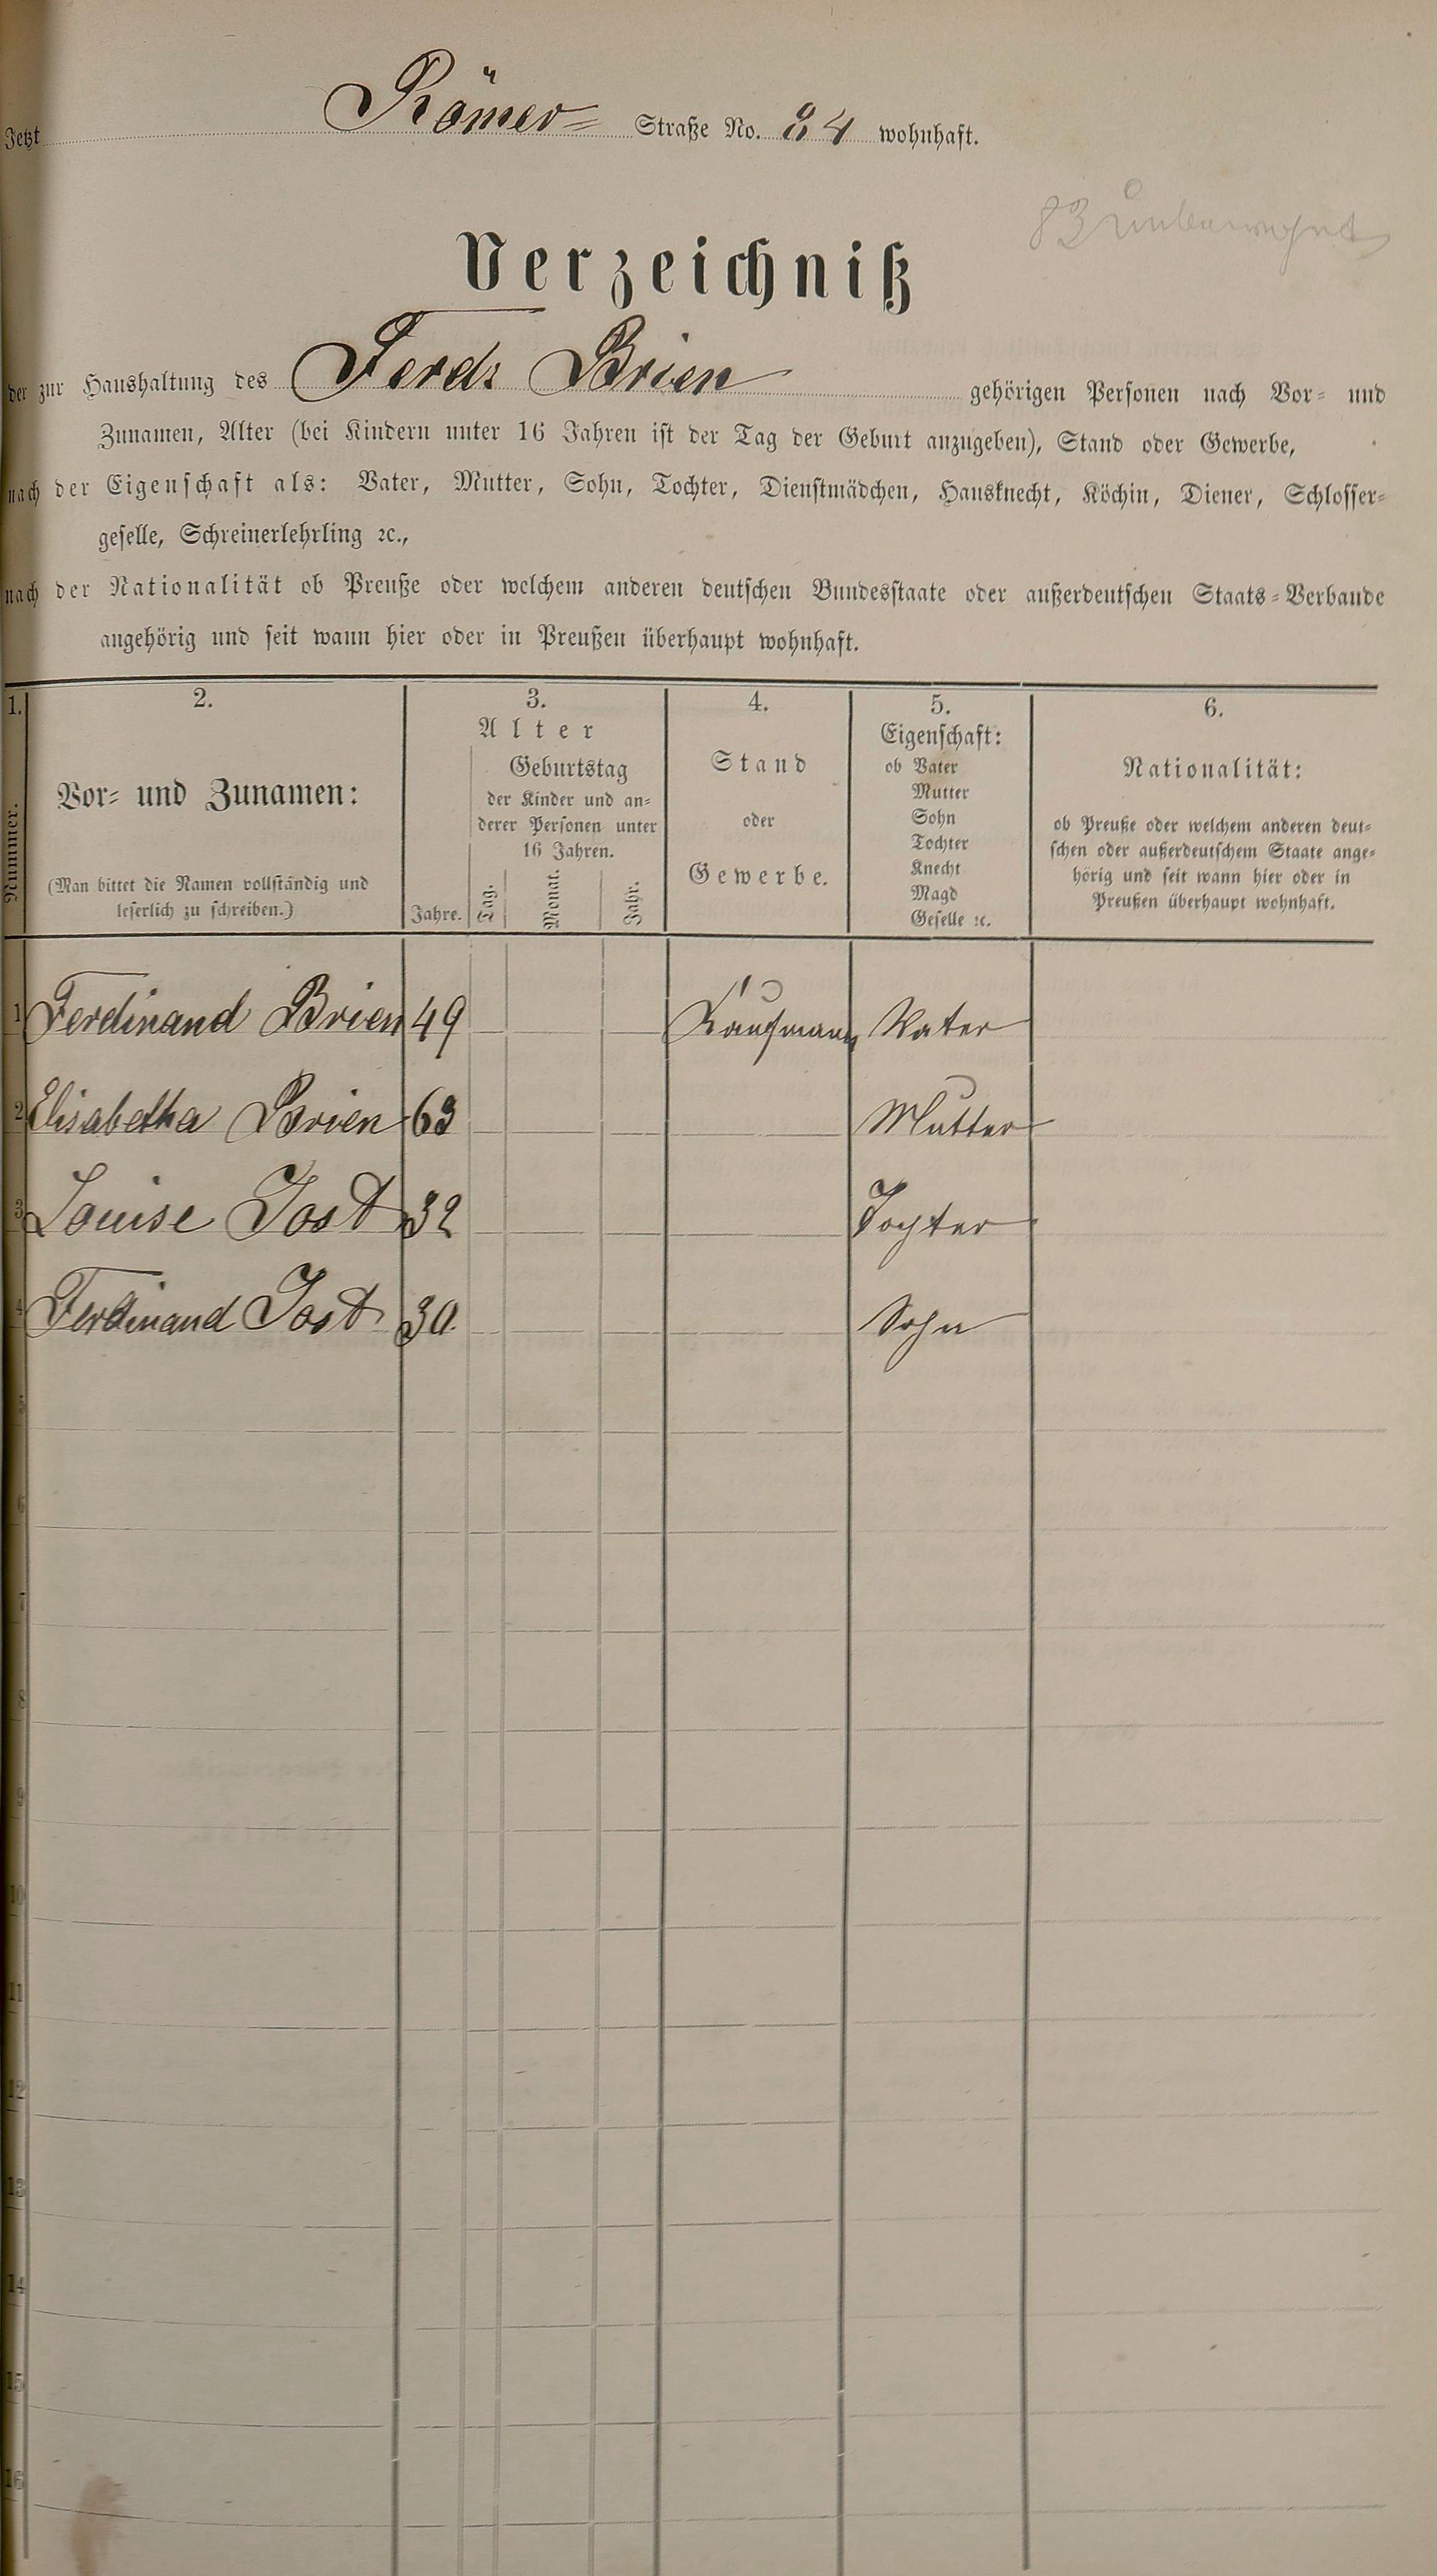 Jetzt Römer= Straße No. 84 wohnhaft.
83 unbewohnt
Verzeichniß
der zur Haushaltung des Ferd. Brien gehörigen Personen nach Vor- und
Zunamen, Alter (bei Kindern unter 16 Jahren ist der Tag der Geburt anzugeben), Stand oder Gewerbe,
nach der Eigenschaft als: Vater, Mutter, Sohn, Tochter, Dienstmädchen, Hausknecht, Köchin, Diener, Schlosser-
geselle, Schreinerlehrling ꝛc.,
nach der Nationalität ob Preuße oder welchem anderen deutschen Bundesstaate oder außerdeutschen Staats-Verbande
angehörig und seit wann hier oder in Preußen überhaupt wohnhaft.
1.
Nummer.
2.
Vor- und Zunamen:
(Man bittet die Namen vollständig und
leserlich zu schreiben.)
3.
Alter
Jahre.
Geburtstag
der Kinder und an-
derer Personen unter
16 Jahren.
Tag. Monat. Jahr.
4.
Stand
oder
Gewerbe.
5.
Eigenschaft:
ob Vater
Mutter
Sohn
Tochter
Knecht
Magd
Geselle ꝛc.
6.
Nationalität:
ob Preuße oder welchem anderen deut-
schen oder außerdeutschem Staate ange-
hörig und seit wann hier oder in
Preußen überhaupt wohnhaft.
1 Ferdinand Brien 49 Kaufmann Vater
2 Elisabetha Brien 63 Mutter
3 Louise Jost 32 Tochter
4 Ferdinand Jost 30 Sohn
5
6
7
8
9
10
11
12
13
14
15
16